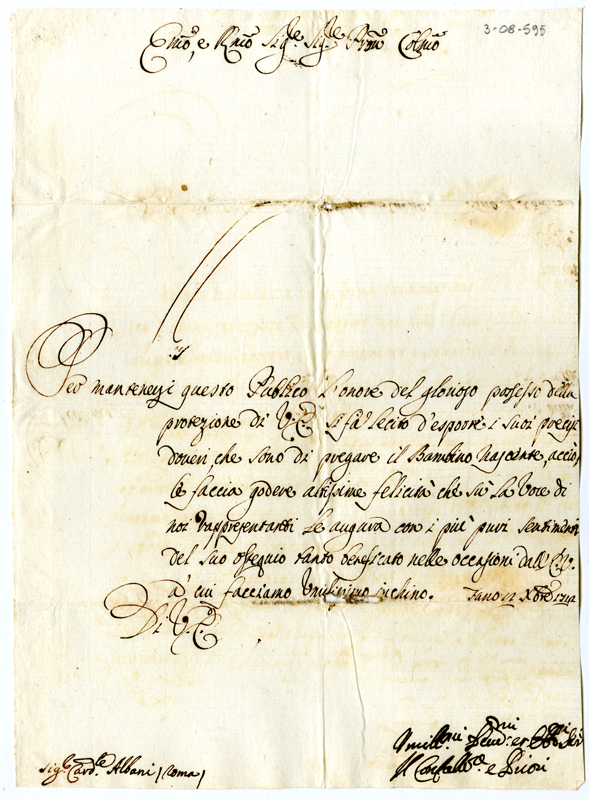 3-08-595
Emo, e Rmo Sige. Sige Prõn Colmo
Per mantenersi questo Publico l'onore del glorioso possesso della
protezione di V. E. si fà lecito d'esporre i suoi precisi
doveri che sono di pregare il Bambino Nascente, acciò
le faccia godere altissime felicità che sù la voce di
noi rappresentanti le augura con i più puri sentimenti
del suo ossequio tanto beneficato nelle occasioni dall' E. V.
à cui facciamo Umilissimo inchino. Fano 12 Xbre
Di V. E.
Sige. Cardle. Albani (Roma)
e Priori